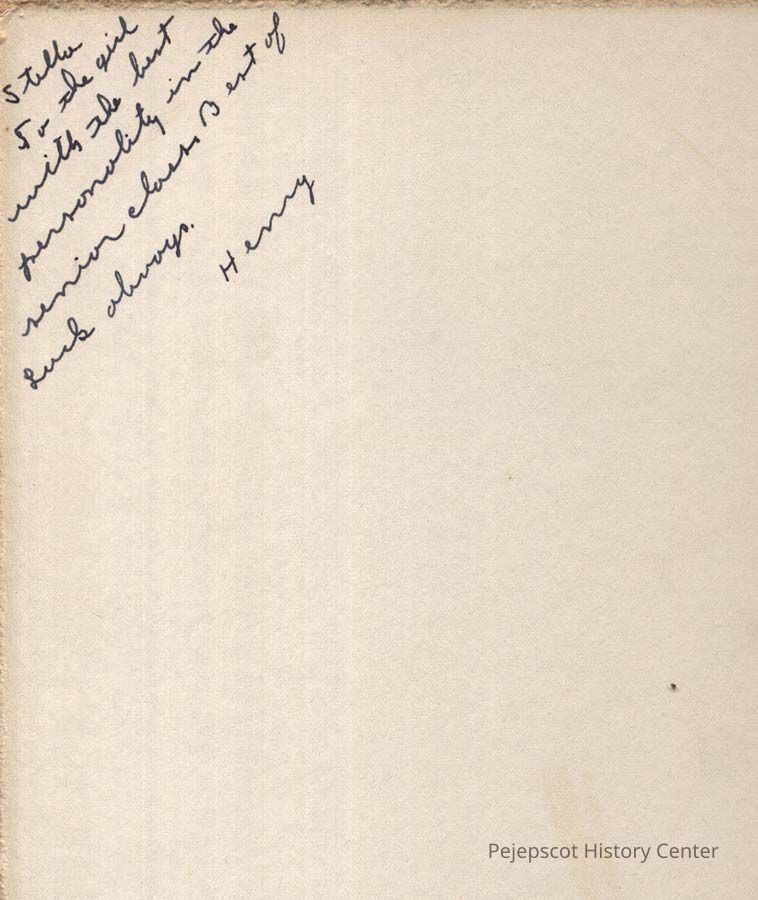 Stella
To the girl
with the best
personality in the
senior class. Best of
Luck always.
Henry
Pejepscot History Center